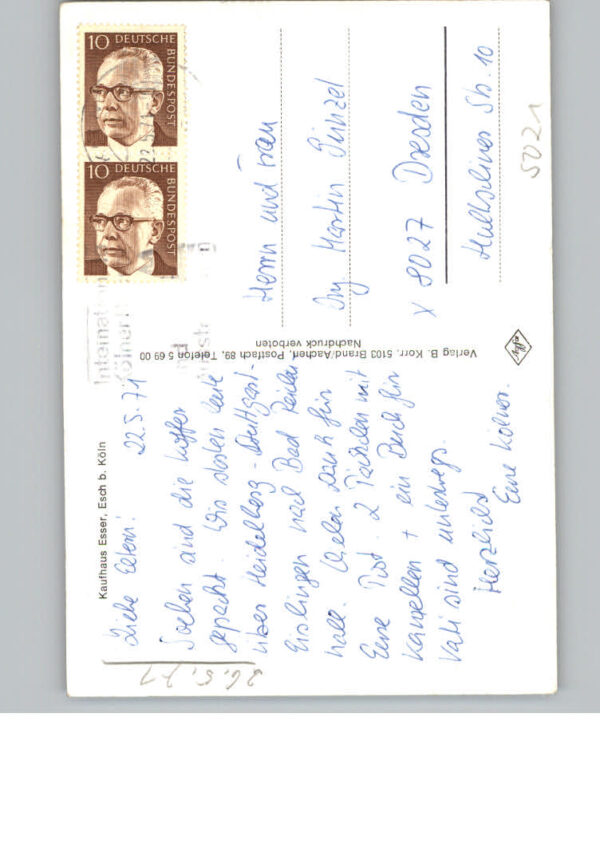 Kaufhaus Esser, Esch b. Köln
22.5.71
Liebe Eltern!
Soeben sind die Koffer
gepackt. Wir starten heute
über Heidelberg - Stuttgart-
Eislingen nach Bad Reichen
hall. Vielen Dank für
Eure Post. 2 Päckchen mit
+ ein Buch für
Vati sind unterwegs.
Herzlichst
Eure Kölner.
26.5.71
Verlag B. Korr. 5103 Brand/Aachen, Postfach 89, Telefon 5 69 00
Nachdruck verboten
10 DEUTSCHE BUNDESPOST
10 DEUTSCHE BUNDESPOST
Internation
Kölner
Herrn und Frau
Ing. Martin
X 8027 Dresden
Str. 10
5021